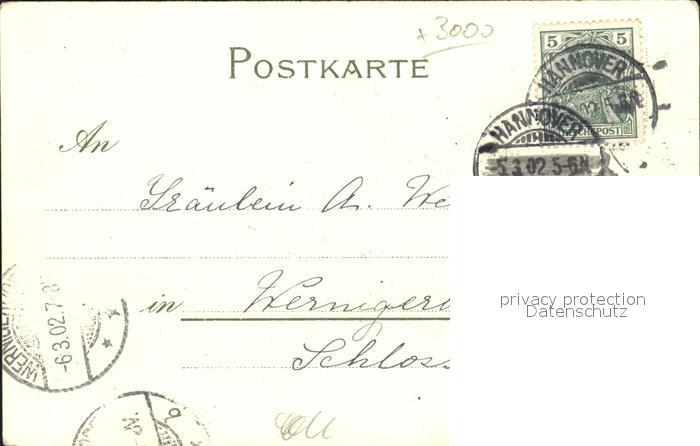 +3000
POSTKARTE
5 5
HANNOVER
HANNOVER
5.3.02.5-6N.
An
Fräulein A. We
in Wernigero
Schloss
-6.3.02.7-8
privacy protection
Datenschutz